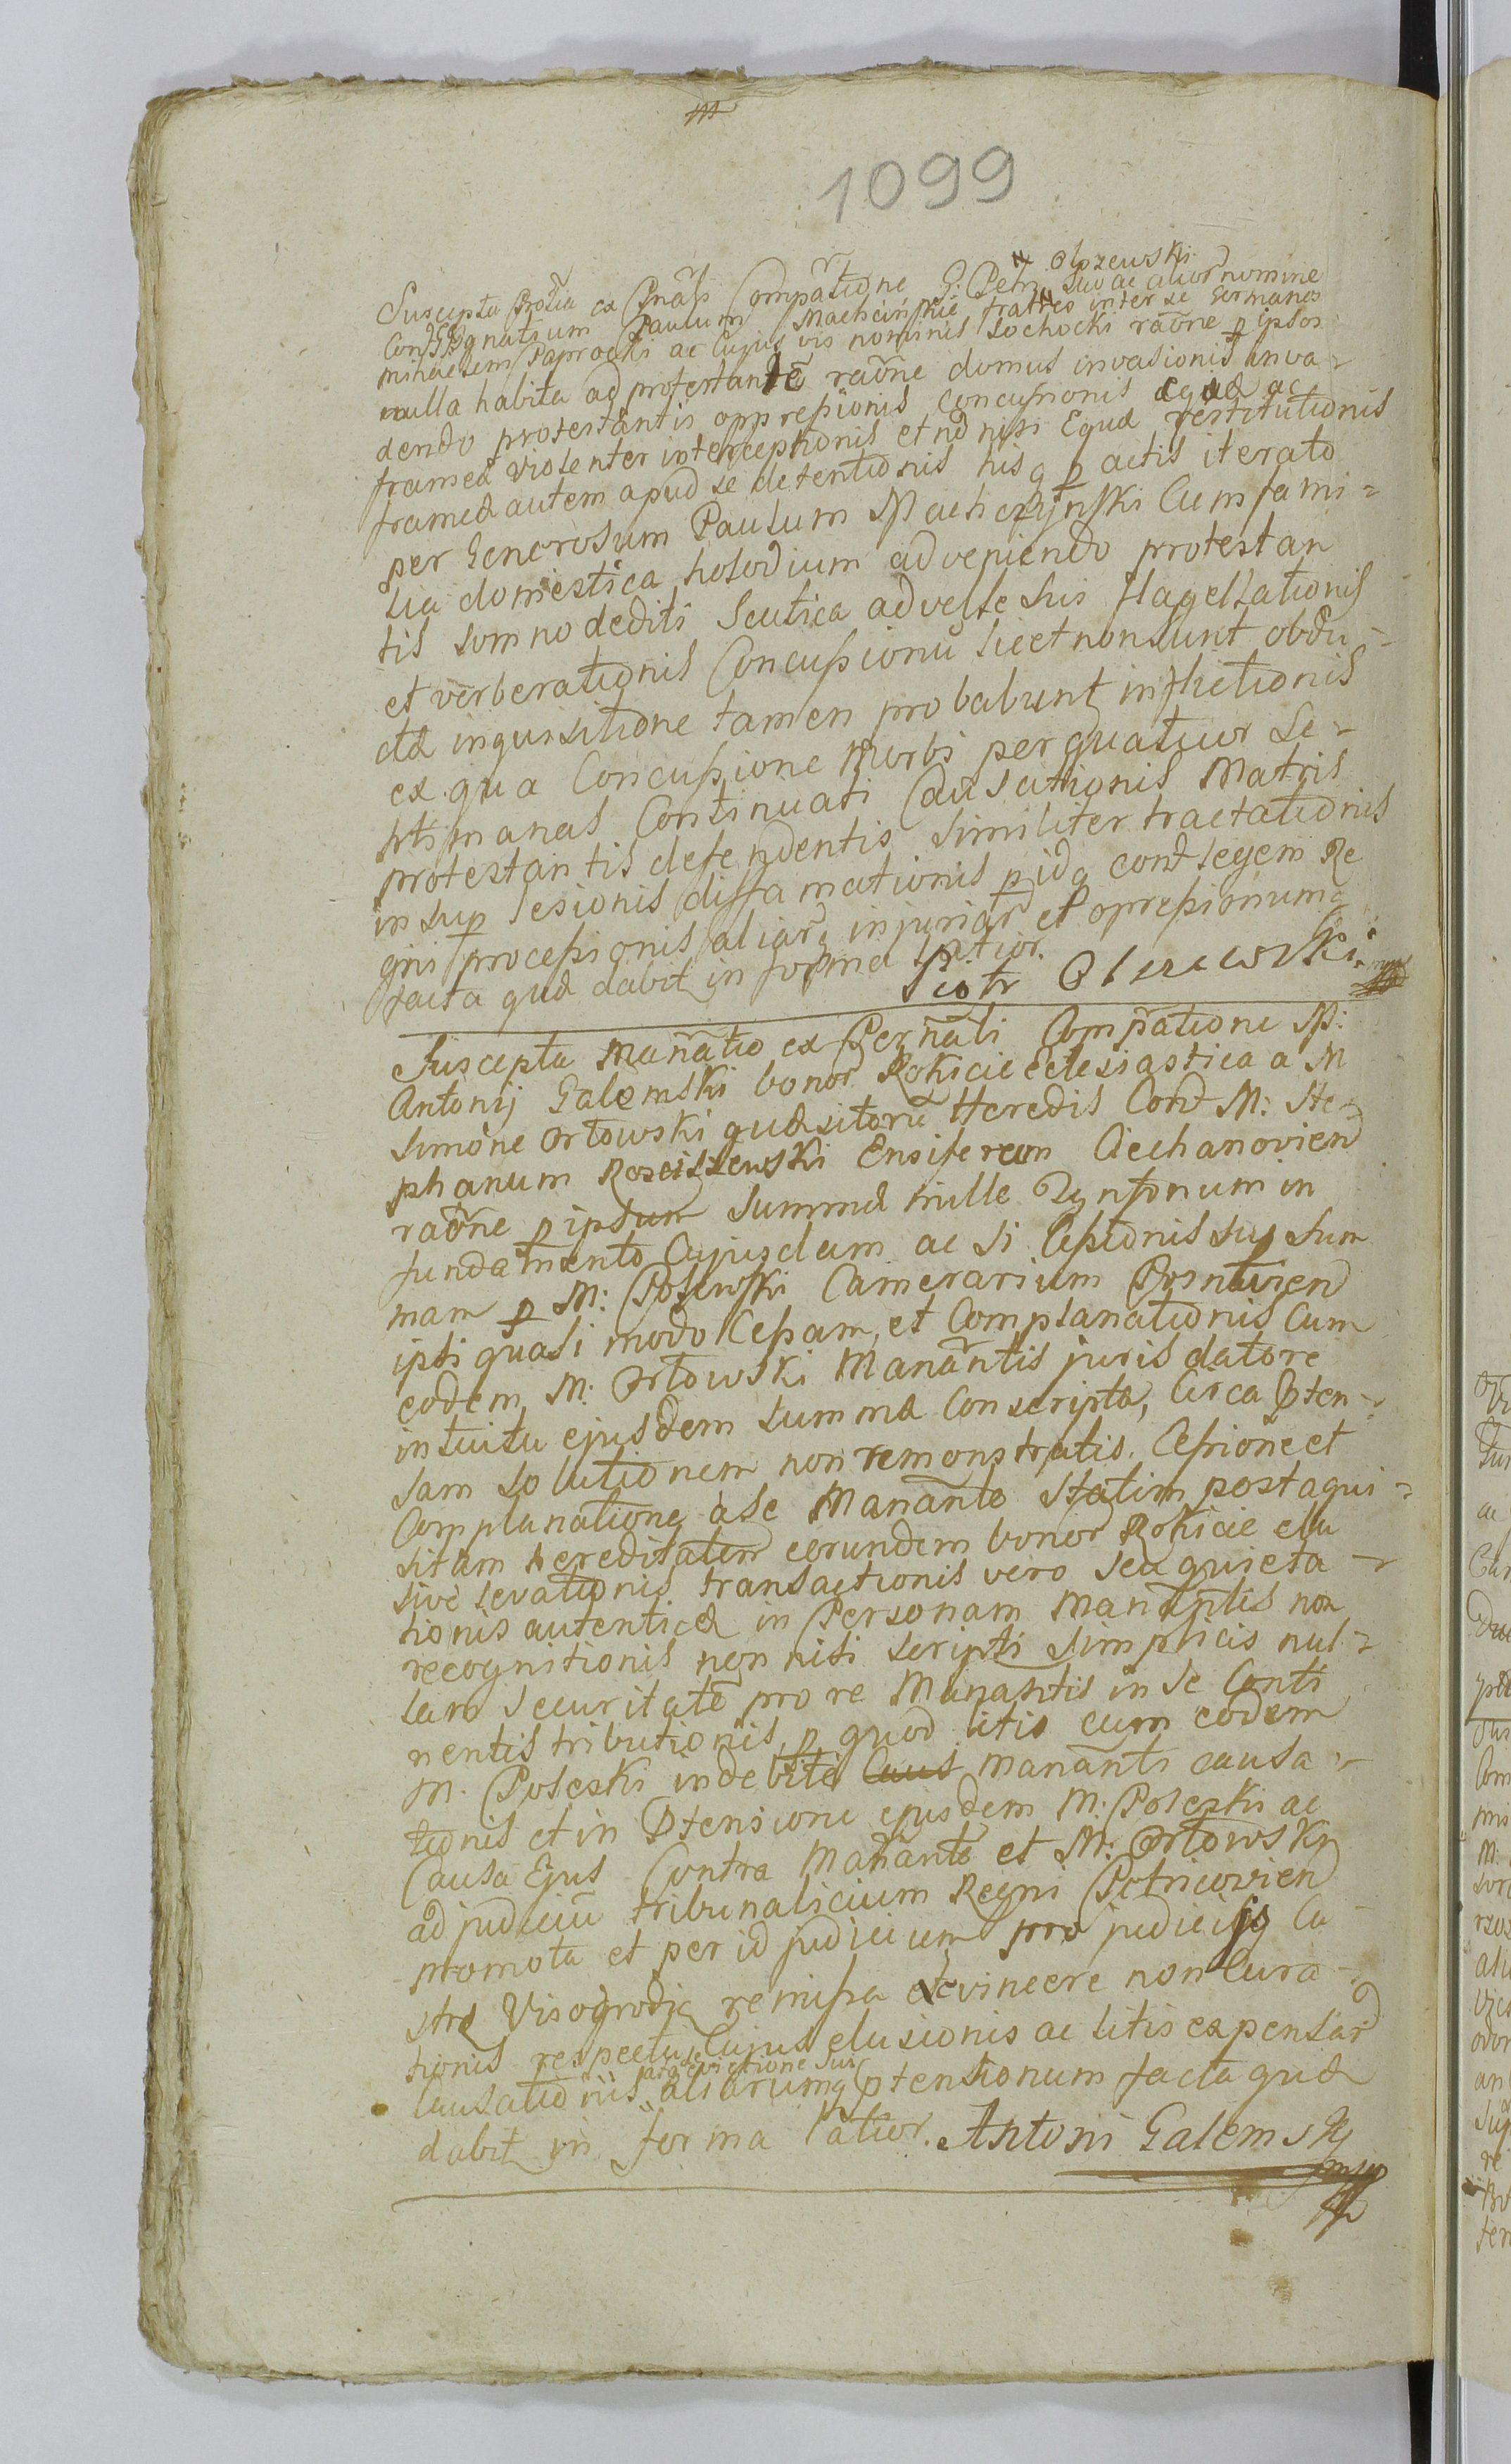 1099
Olszewski
Suscepta Prottio ex Prnali Compãtione G: Petri suo ac alior nomine
Con GG Ignatium Paulum Machcińskie fratres inter se Germanos
Michaelem Paprocki ac Cujus vis nominis Lochocki raõne p ipsos
nulla habita ad protestantẽ raõne domus invasionis inva-
dendo protestantis oppressionis Concussionis ac
frameæ violenter interceptionis et nõ nisi Equæ restitutionis
frameæ autem apud se detentionis hisq p actis iterato
per Generosum Paulum Machczynski Cum fami=
lia domestica adveniendo protestan
tis somno dediti Scutica ad velle suis flagellationis
et verberationis Concussionũ licet non sunt obdu-
ctæ inquisitione tamen probabunt inflictionis
ex qua Concussione Morbi per quatuor Se-
ptimanas Continuati Causationis Matris
protestantis defendentis similiter tractationis
insup lesionis diffamationis p idq cont legem Re
gni processionis aliarq injuriar et opressionumq
facta quæ dabit in forma latior.
Piotr Olszewski mp
Suscepta Manãtio ex Persnali Compãtione M:
Antonij Galemski bonor Rokicie Eclesiastica a M
Simone Orłowski quæsitorũ Heredis Cont M: Ste-
phanum Rosciszewski Ensiferum Ciechanovien
raõne p ipsum Summæ mille Tynfonum in
fundamento Cujusdam ac si Cessionis sup sum
mam p M: Poleski Camerarium
ipsi quasi modo Cessam, et Complanationis Cum
eodem M: Orłowski Manãntis juris datore
intuitu ejusdem summæ Conscriptæ, Circa Pten-
sam solutionem non remonstratis. Cessione et
Complanatione a se Manãnte statim post aqui=
sitam hereditatem eorundem bonor Rokicie elu
sive levationis transactionis vero seu quieta-
tionis autenticæ in Personam Manãntis non
recognitionis non nisi scripti simplicis nul-
lam securitatẽ pro re Manãntis in se Conti
nentis tributionis, p quod litis cum eodem
M. Poleski indebite Manãnti causa-
tionis et in Ptensione ejusdem M: Poleski ac
Causa Ejus Contra Manãntẽ et M: Orłowski
ad judiciũ tribunalicium Regni Petricovien
promota et per id judicium pro judicijs Ca
stre Visogrodiæ remissa evincere non Cura-
tionis respectu Cujus elusionis ac litis expensar
pro evictione sui
Causationis aliorumq ptensionum facta quæ
dabit in forma latior. Antoni Galemski
mp